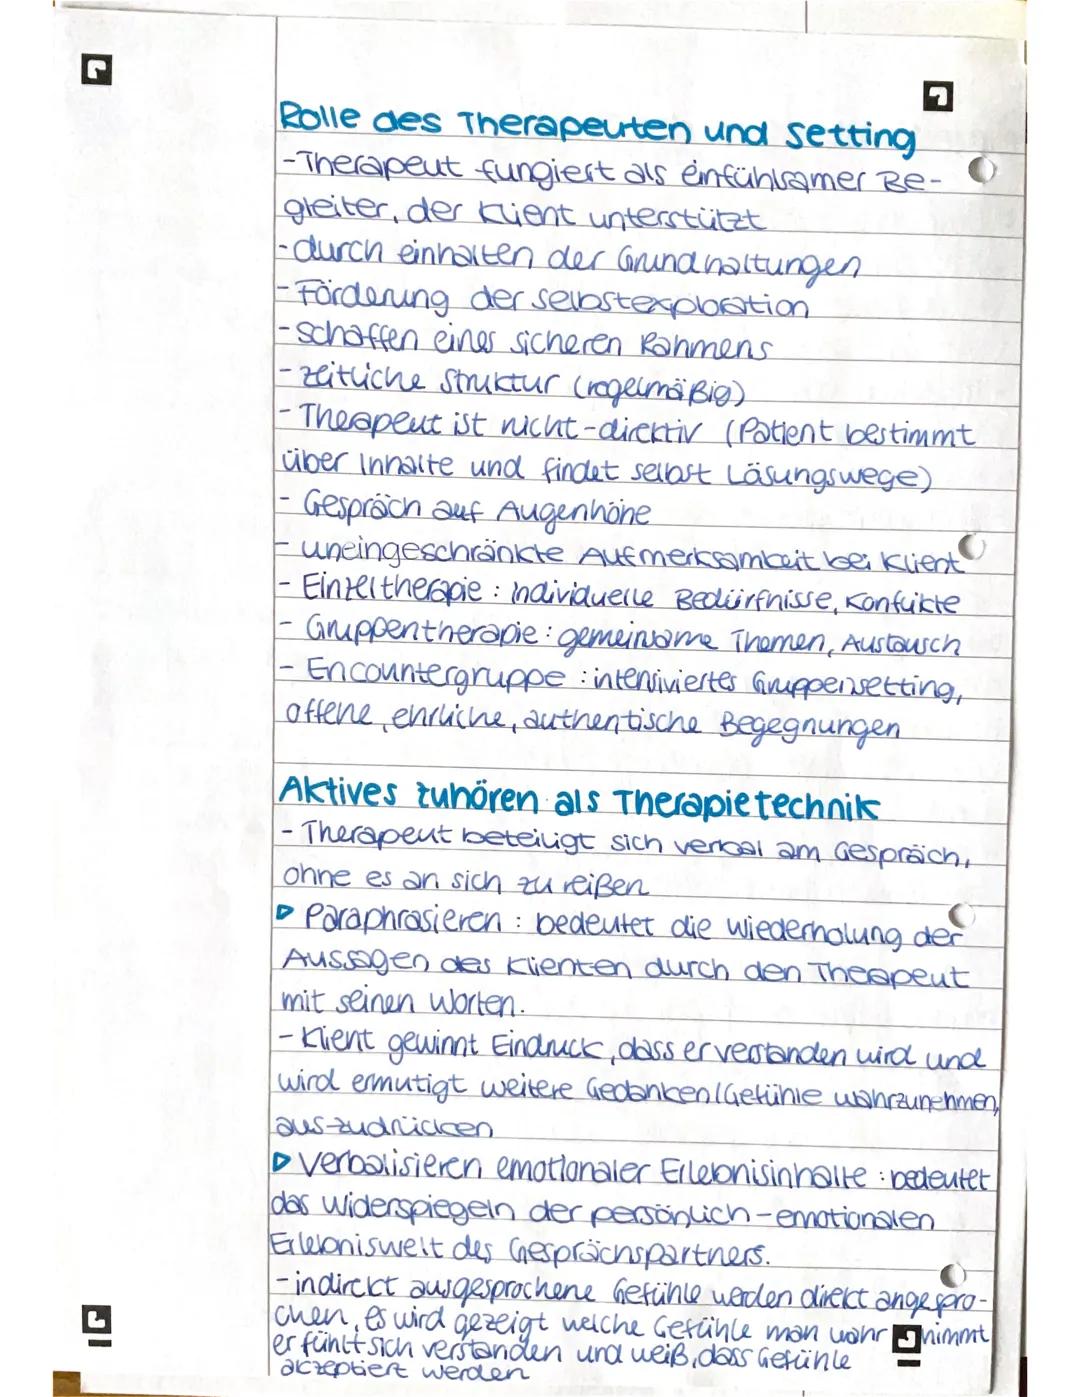 Rolle des Therapeuten und Setting
- Therapeut fungiert als einfühlsamer Be-
gleiter, der Klient unterstützt
- durch einhalten der Grundhaltungen
- Förderung der Selbstexploration
- schaffen eines sicheren Rahmens
- zeitliche Struktur (regelmäßig)
- Therapeut ist nicht-direktiv (Patient bestimmt
über Inhalte und findet selbst Lösungswege)
- Gespräch auf Augenhöhe
- uneingeschränkte Aufmerksamkeit bei Klient
- Einzeltherapie : Individuelle Bedürfnisse, Konflikte
- Gruppentherapie : gemeinsame Themen, Austausch
- Encountergruppe : intensiviertes Gruppensetting,
offene, ehrliche, authentische Begegnungen
Aktives zuhören als Therapietechnik
- Therapeut beteiligt sich verbal am Gespräch,
ohne es an sich zu reißen
▷ Paraphrasieren : bedeutet die Wiederholung der
Aussagen des Klienten durch den Therapeut
mit seinen Worten.
- Klient gewinnt Eindruck, dass er verstanden wird und
wird ermutigt weitere Gedanken/Gefühle wahrzunehmen,
auszudrücken
▷ Verbalisieren emotionaler Erlebnisinhalte : bedeutet
das Widerspiegeln der persönlich-emotionalen
Erlebniswelt des Gesprächspartners.
- indirekt ausgesprochene Gefühle werden direkt angespro-
chen, es wird gezeigt welche Gefühle man wahrnimmt
er fühlt sich verstanden und weiß, dass Gefühle
akzeptiert werden